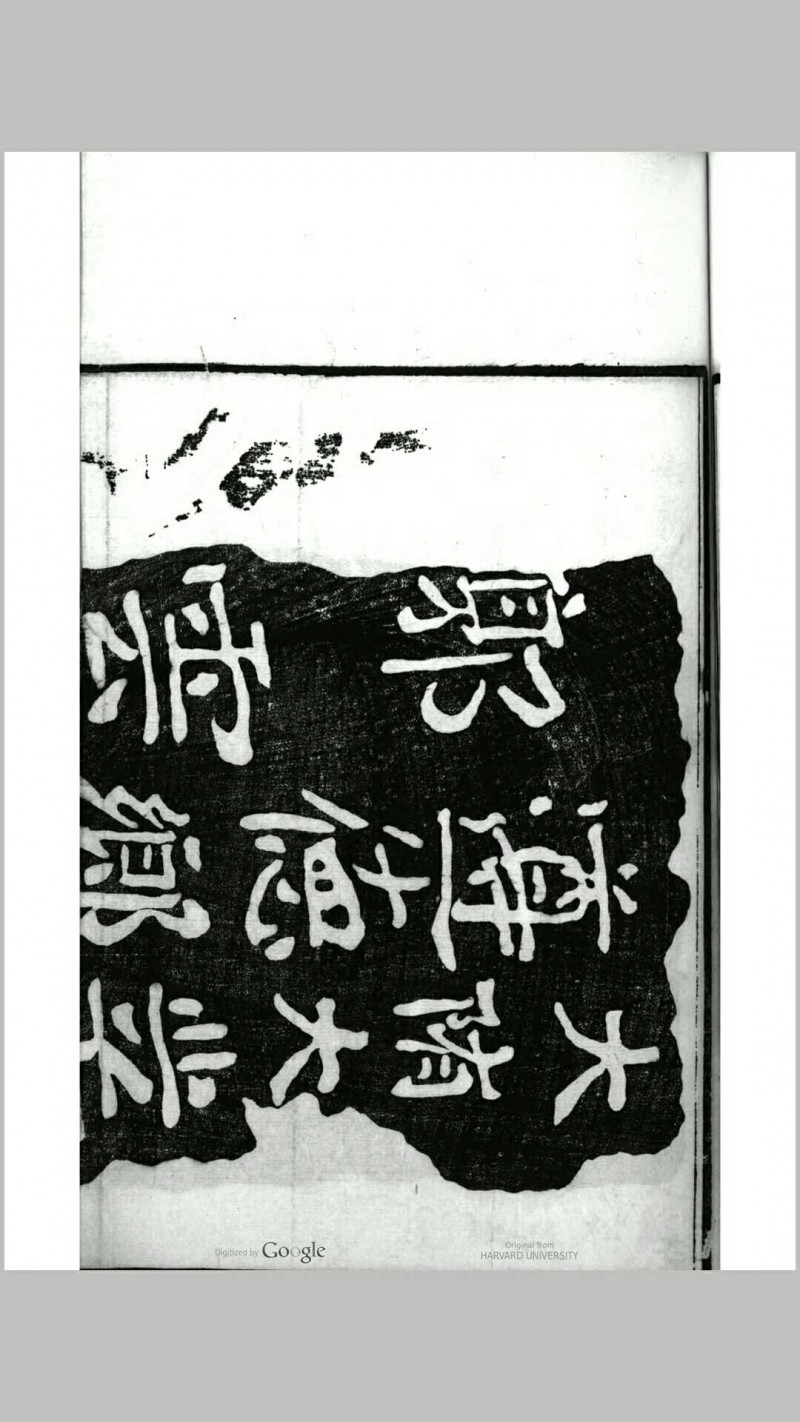 大隋大業
遵德鄉
郭雲
Digitized by Google
Original from
HARVARD UNIVERSITY